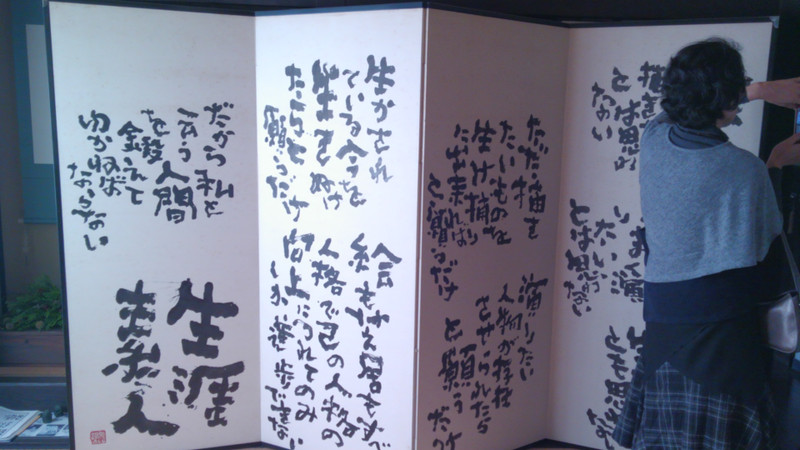 描き
とは思わ
ない
演
たい
とは思わない
とも思わない
ただ描き
たいものを
生け捕り
に出来れば
と願うだけ
演りたい
人物が存在
させられたら
と願うだけ
生かされ
ている今を
生きぬけ
たらと
願うだけ
絵も
人格で己の人格の
向上につれてのみ
しか進歩できない
だから私と
云う人間
を鍛えて
ゆかねば
ならない
生涯
素人